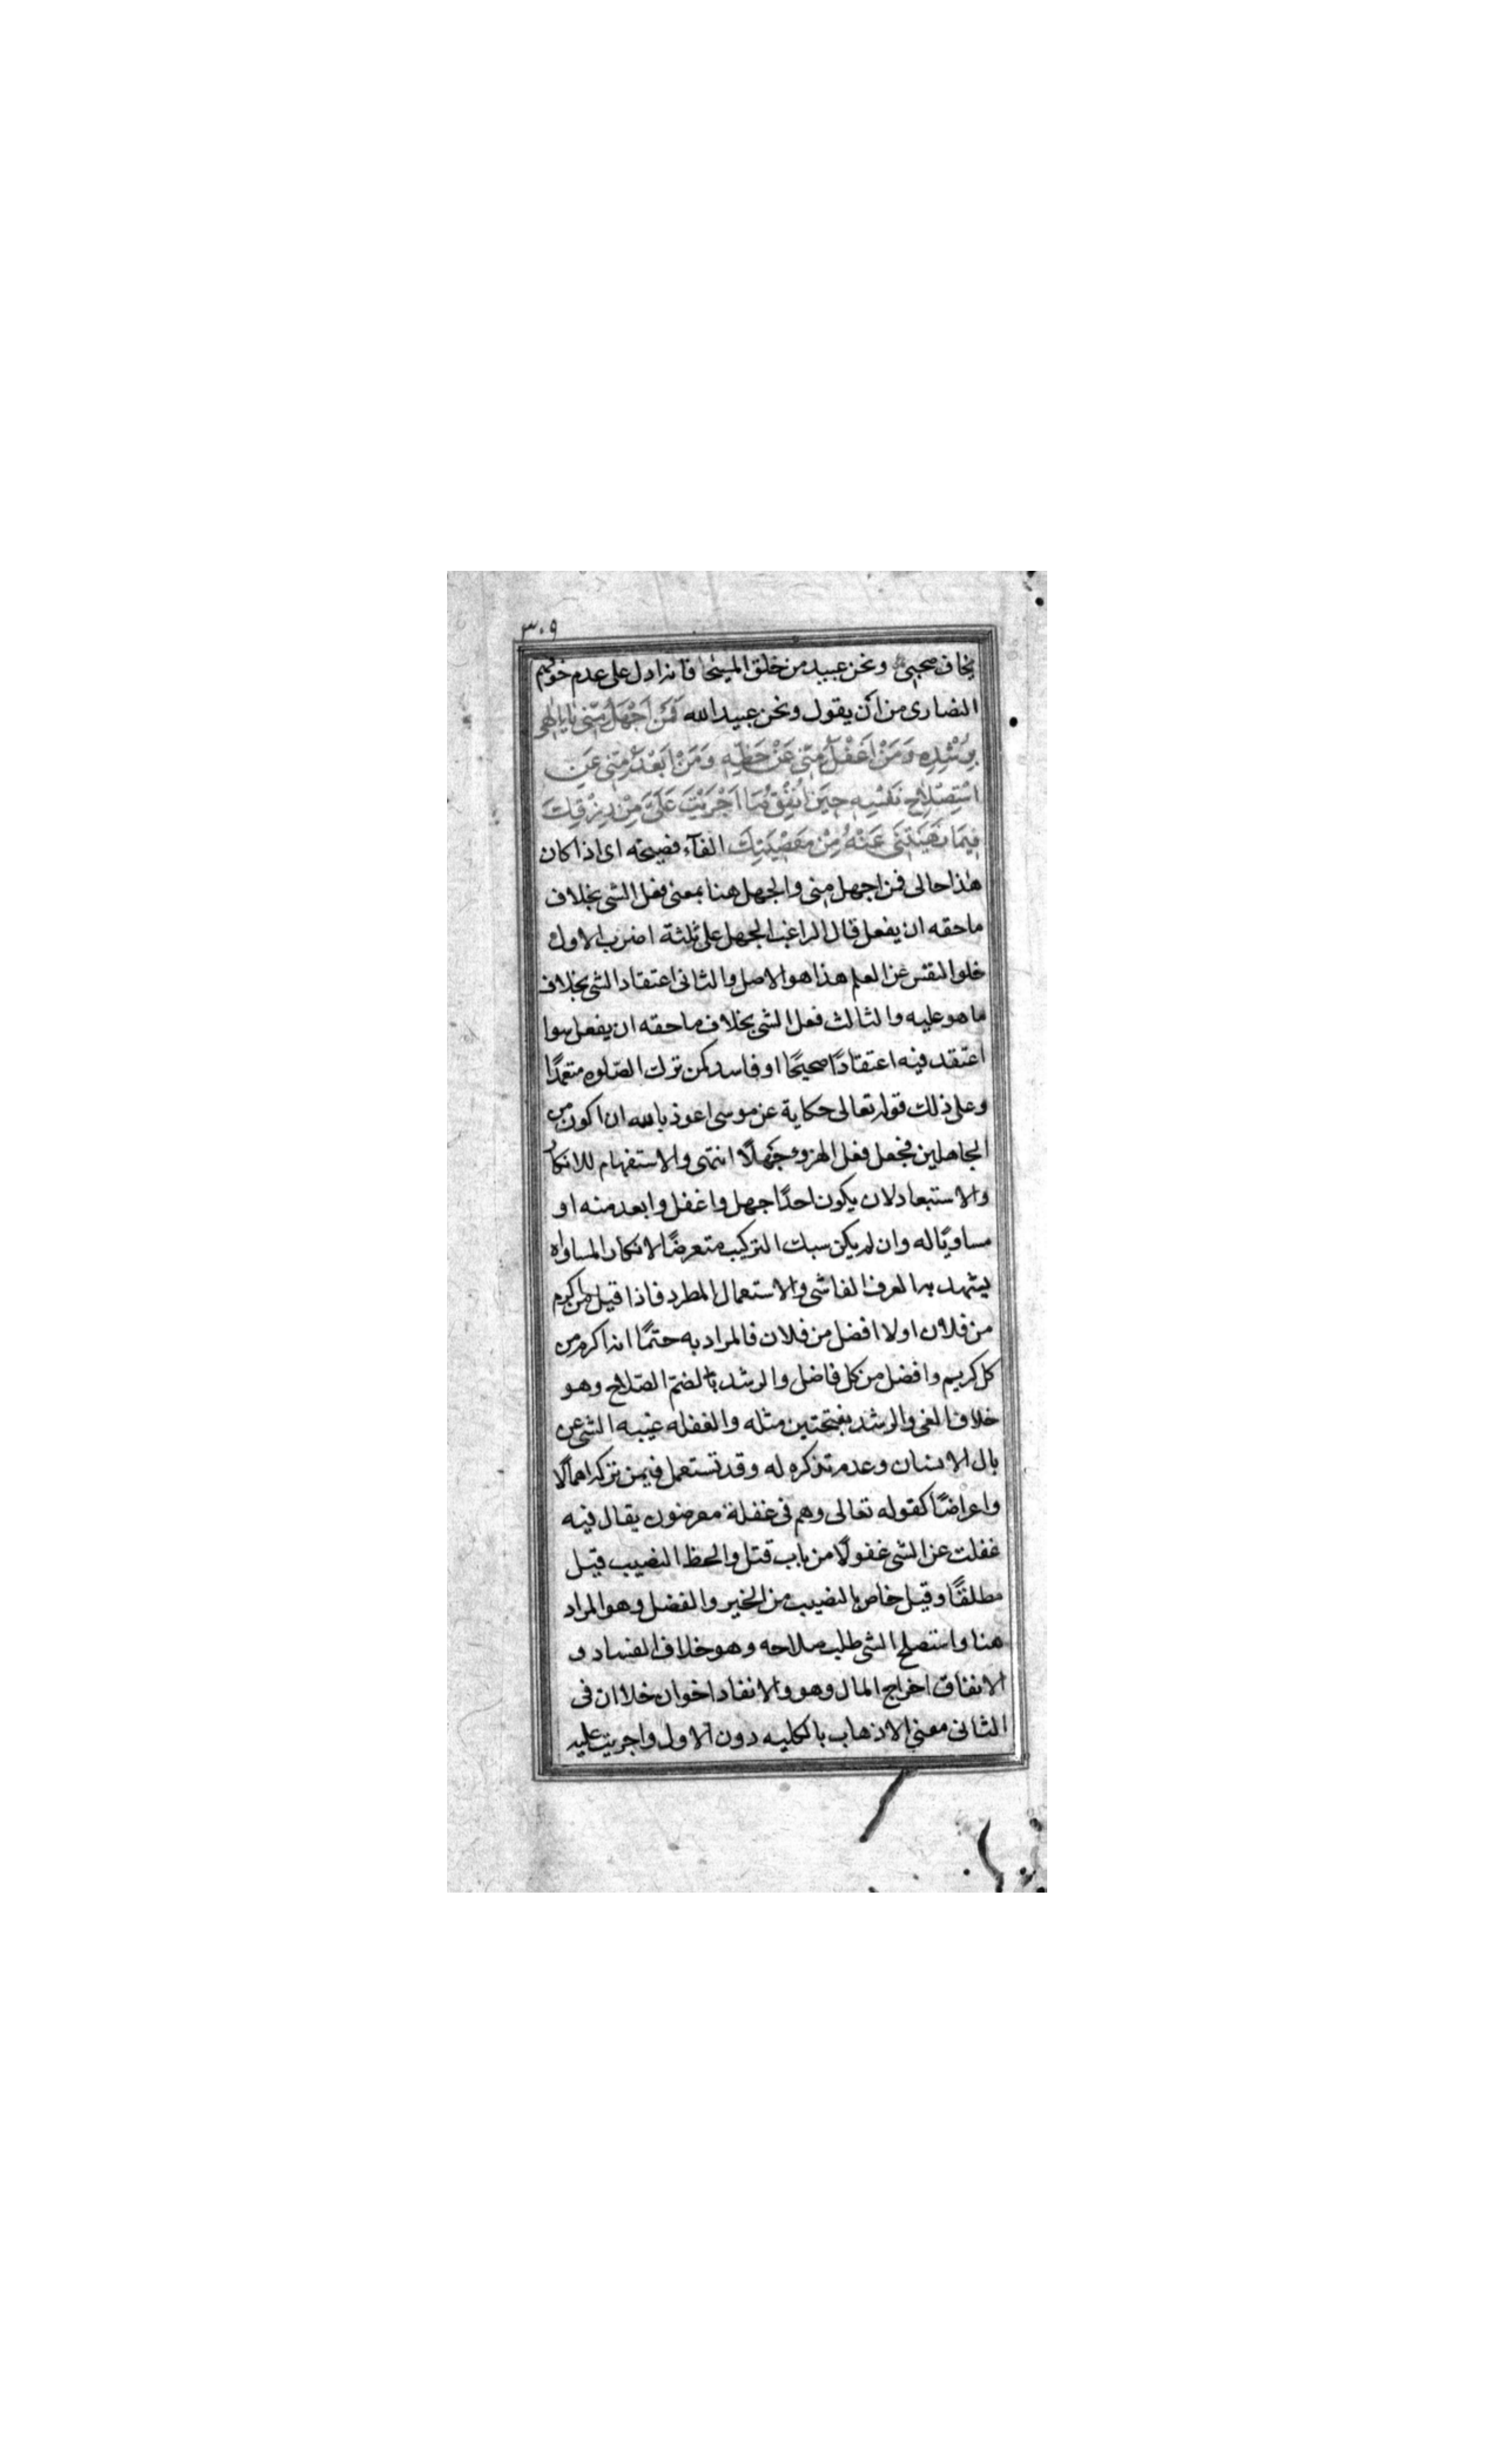 ٣٠٩
يخاف صحبى ونحن عبيد من خلق المسيحا فانه ادل على عدم خوفهم
النصارى من ان يقول ونحن عبيد الله فَمَنْ اَجْهَلُ مِنّى يَا اِلٰهى
بِرُشْدِهِ وَمَنْ اَغْفَلُ مِنّى عَنْ حَظِّهِ وَمَنْ اَبْعَدُ مِنّى عَنِ
اسْتِصْلاحِ نَفْسِهِ حِينَ اُنْفِقُ مَا اَجْرَيْتَ عَلَىَّ مِنْ رِزْقِكَ
فِيمَا نَهَيْتَنِى عَنْهُ مِنْ مَعْصِيَتِكَ الفآء فصيحة اى اذا كان
هذا حالى فمن اجهل منى والجهل هنا بمعنى فعل الشى بخلاف
ما حقه ان يفعل قال الراغب الجهل على ثلثة اضرب الاول
خلو النفس عن العلم هذا هو الاصل والثانى اعتقاد الشى بخلاف
ما هو عليه والثالث فعل الشى بخلاف ما حقه ان يفعل سوا
اعتقد فيه اعتقادًا صحيحًا او فاسد كمن ترك الصّلوه متعمدًا
وعلى ذلك قوله تعالى حكاية عن موسى اعوذ بالله ان اكون من
الجاهلين فجعل فعل الهزو جهلًا انتهى والاستفهام للانكار
والاستبعاد لان يكون احدًا جهل واغفل وابعد منه او
مساويًا له وان لم يكن سبك التركيب متعرضًا لانكار المساواه
يشهد به العرف الفاشى والاستعمال المطرد فاذا قيل من اكرم
من فلان او لا افضل من فلان فالمراد به حتمًا انه اكرم من
كل كريم وافضل من كل فاضل والرشد بالضمّ الصّلاح وهو
خلاف الغى والرشد بفتحتين مثله والغفله غيبه الشى عن
بال الانسان وعدم تذكره له وقد تستعمل فيمن تركه اهمالًا
واعراضًا كقوله تعالى وهم فى غفلة معرضون يقال فيه
غفلت عن الشى غفولًا من باب قتل والحظ النصيب قيل
مطلقًا وقيل خاص بالنصيب من الخير والفضل وهو المراد
هنا واستصلح الشى طلب صلاحه وهو خلاف الفساد و
الانفاق اخراج المال وهو والانفاد اخوان خلا ان فى
الثانى معنى الاذهاب بالكليه دون الاول واجريت عليه